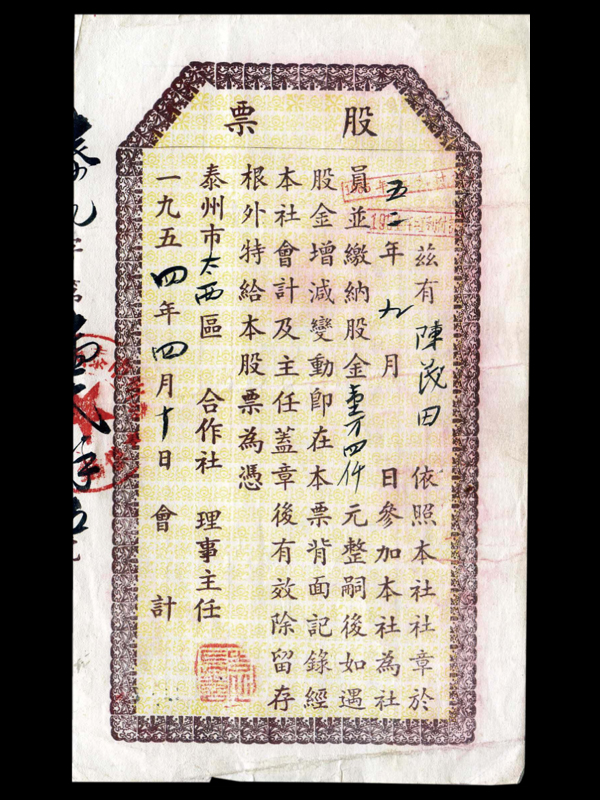 股票
茲有陳茂田依照本社社章於
五二年九月 日參加本社為社
員並繳納股金壹万四仟元整嗣後如遇
股金增減變動即在本票背面記錄經
本社會計及主任蓋章後有效除留存
根外特給本股票為憑
泰州市太西區 合作社 理事主任
一九五四年四月十日 會計